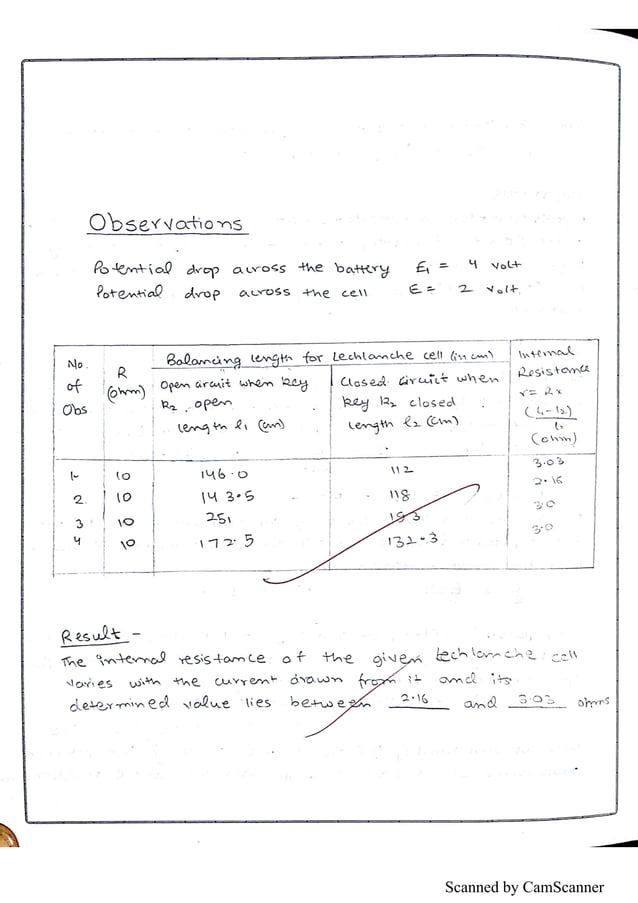 Observations
Potential drop across the battery E₁ = 4 volt
Potential drop across the cell E = 2 volt.
No. of Obs
R (ohm)
Balancing length for Lechlanche cell (in cm)
Open circuit when key K₂ open length l₁ (cm)
Closed circuit when key K₂ closed length l₂ (cm)
Internal Resistance r = R x (l₁-l₂)/l₂ (ohm)
1. 10 146.0 112 3.03
2. 10 143.5 118 2.16
3 10 251 193 3.0
4 10 172.5 132.3 3.0
Result -
The internal resistance of the given Lechlanche cell
varies with the current drawn from it and its
determined value lies between 2.16 and 3.03 ohms
Scanned by CamScanner